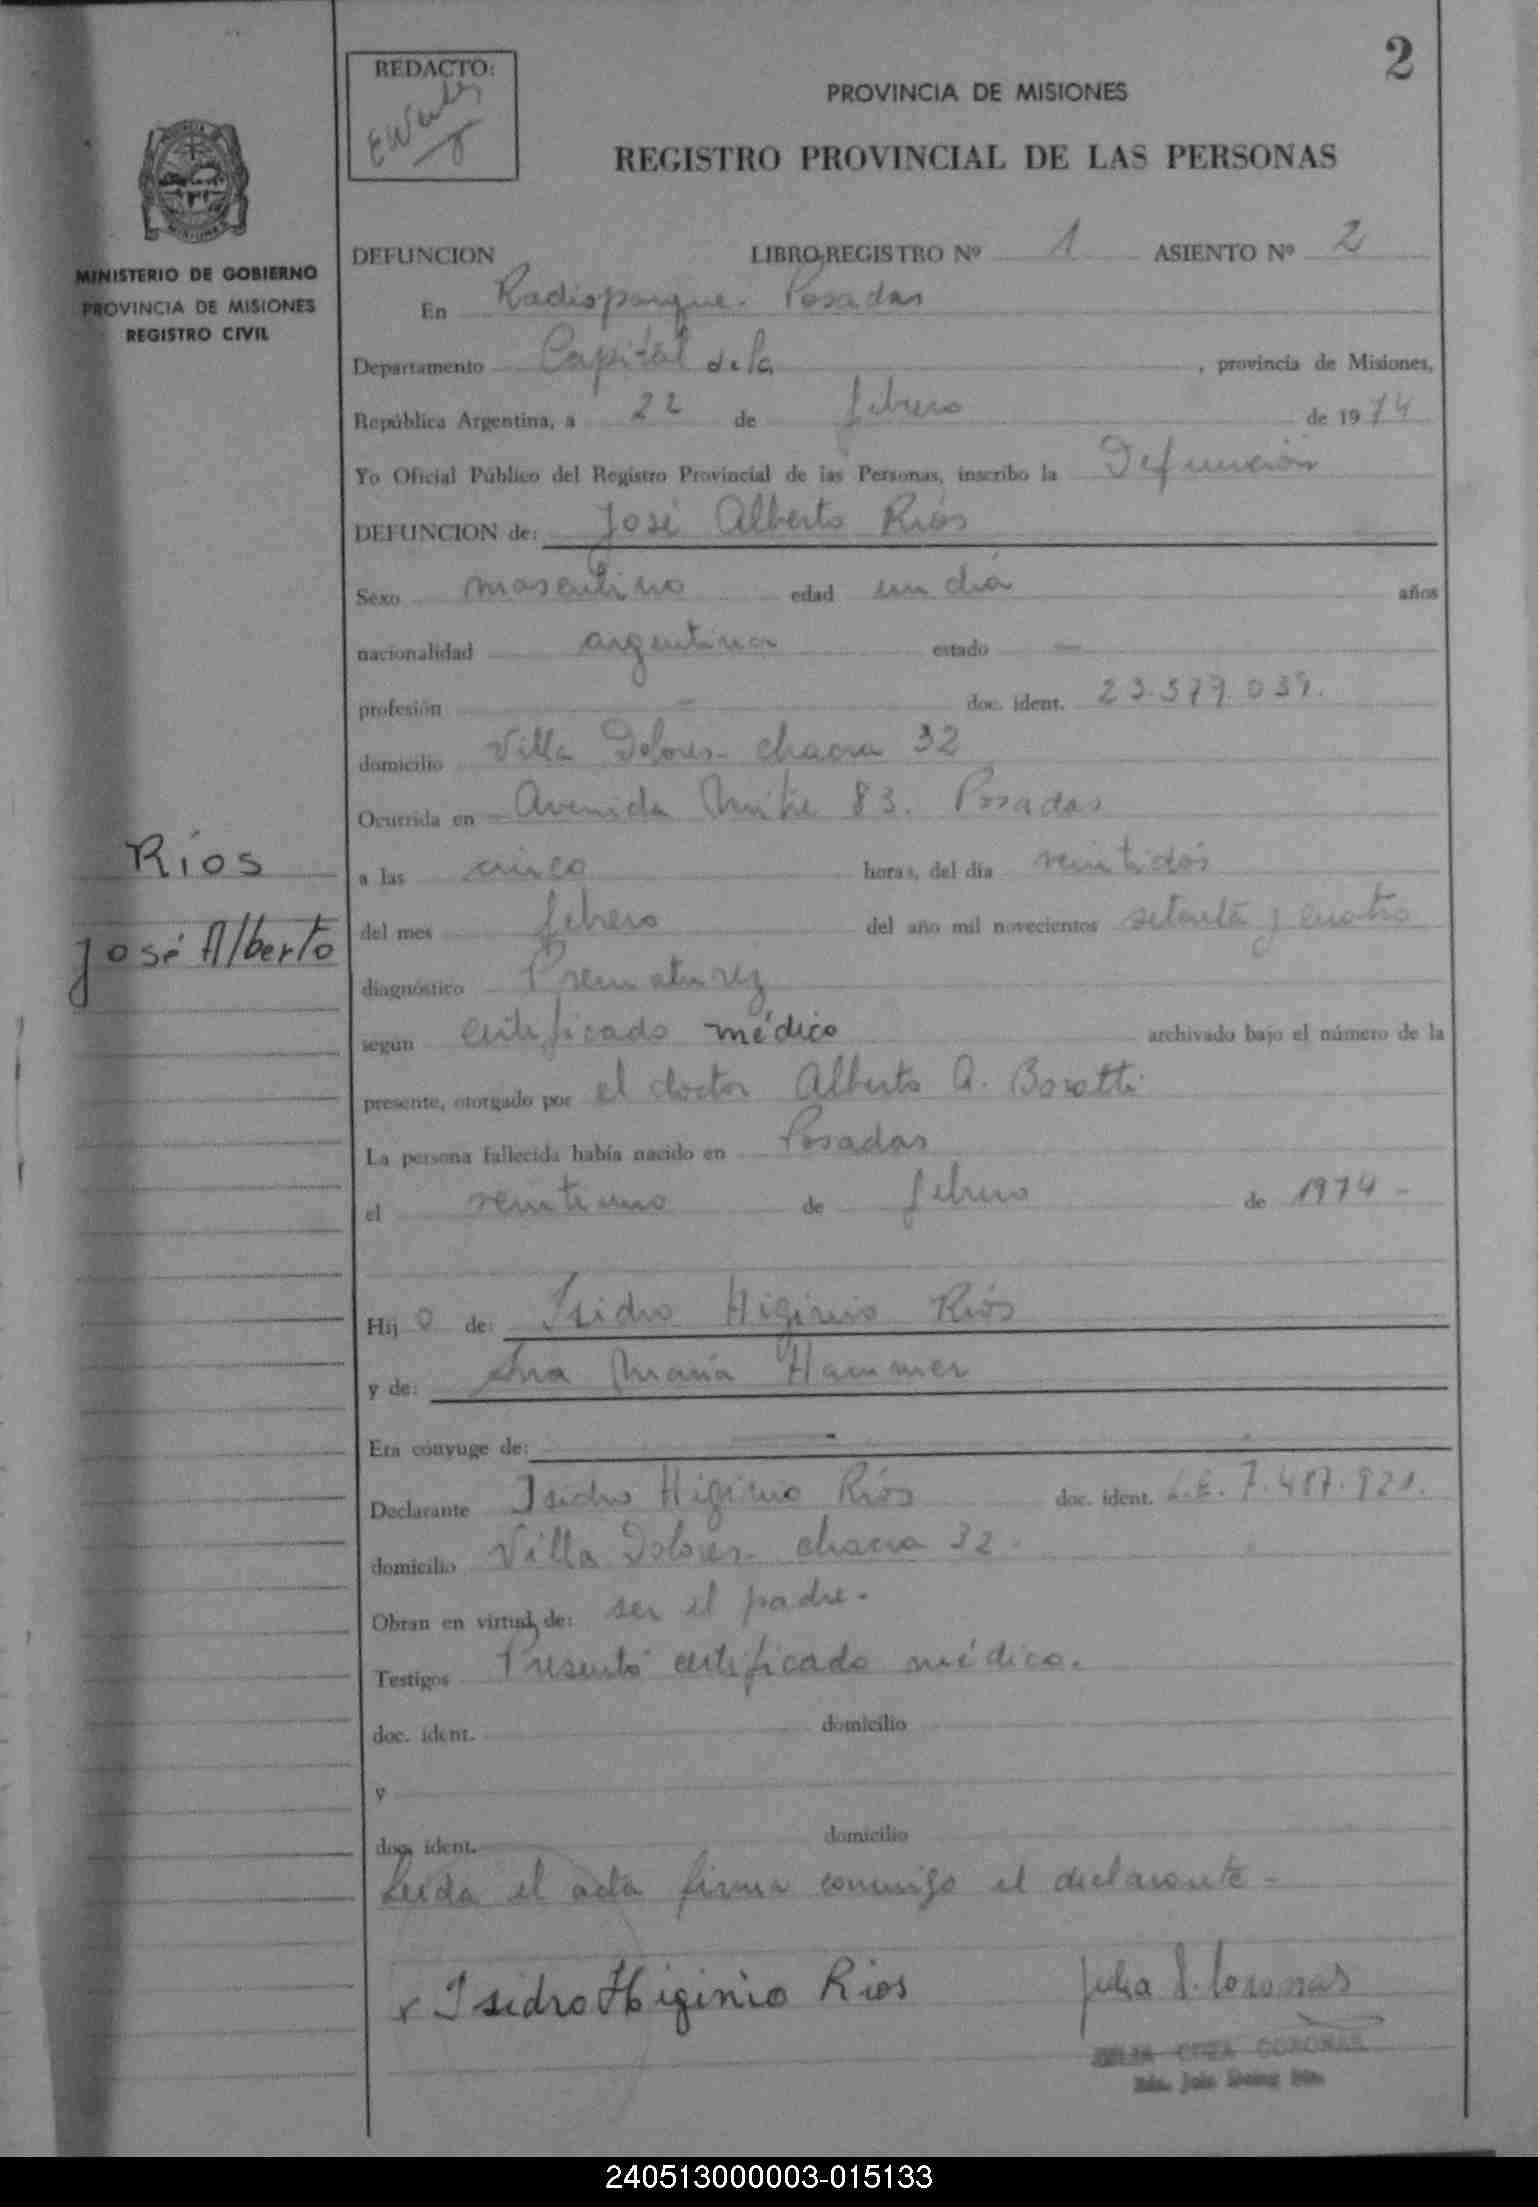 2
REDACTO:
PROVINCIA DE MISIONES
REGISTRO PROVINCIAL DE LAS PERSONAS
MINISTERIO DE GOBIERNO
PROVINCIA DE MISIONES
REGISTRO CIVIL
DEFUNCION LIBRO REGISTRO Nº 1 ASIENTO Nº 2
En Radioparque. Posadas
Departamento Capital de la, provincia de Misiones,
República Argentina, a 22 de febrero de 1974
Yo Oficial Público del Registro Provincial de las Personas, inscribo la Defunción
DEFUNCION de: José Alberto Ríos
Sexo masculino edad un día años
nacionalidad argentina estado -
profesión - doc. ident. 23.379.039.
domicilio Villa Dolores- chacra 32
Ocurrida en Avenida Mitre 83. Posadas
Ríos
a las cinco horas, del día veintidós
José Alberto
del mes febrero del año mil novecientos setenta y cuatro
diagnóstico Prematurez
según certificado médico archivado bajo el número de la
presente, otorgado por el doctor Alberto A. Borotti
La persona fallecida había nacido en Posadas
el veintiuno de febrero de 1974-
Hijo de: Isidro Higinio Ríos
y de: Ana María Hammer
Era cónyuge de: -
Declarante Isidro Higinio Ríos doc. ident. L.E. 7.487.921.
domicilio Villa Dolores- chacra 32.
Obran en virtud de: ser el padre.
Testigos Presentó certificado médico.
doc. ident. domicilio
y
doc. ident. domicilio
Leída el acta firma conmigo el declarante-
x Isidro Higinio Rios Julia E. Coronas
JULIA COZA CORONAS